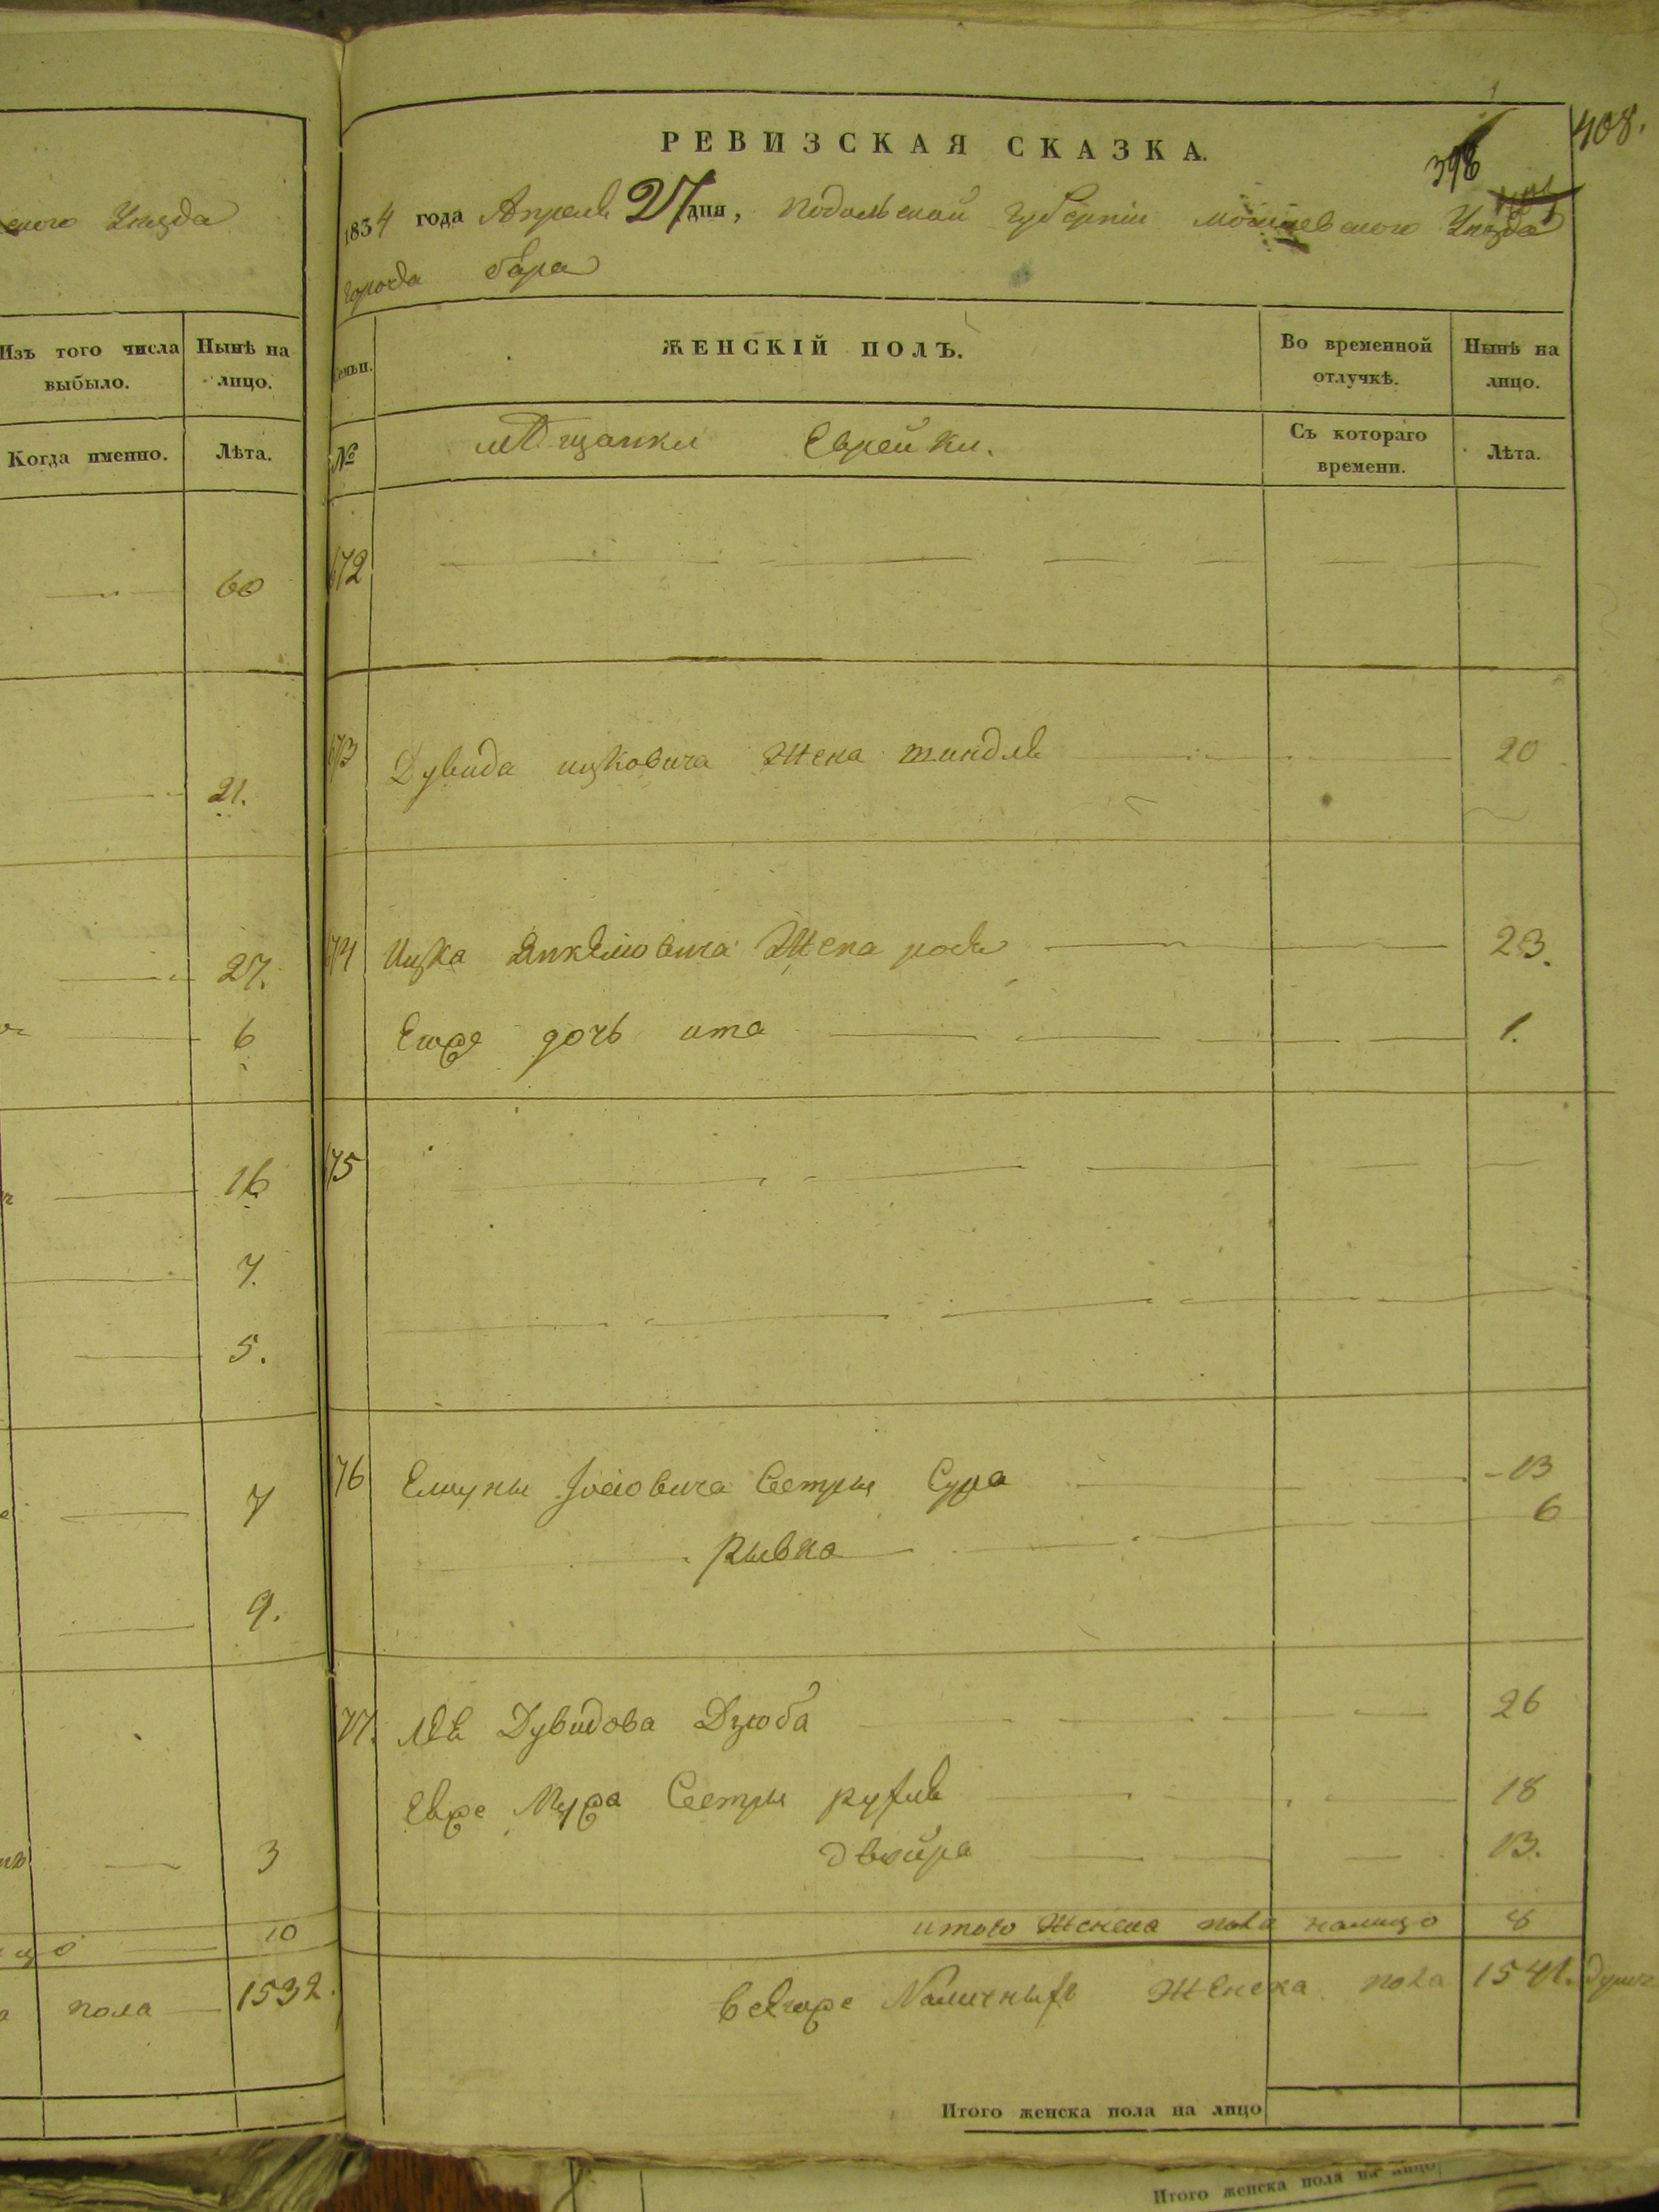 ского Уезда
Изъ того числа выбыло.
Нынѣ на лицо.
Когда именно.
Лѣта.
60
21.
27.
6
16
7.
5.
7
9.
3
10
пола 1532.
408.
398
РЕВИЗСКАЯ СКАЗКА.
1834 года Апреля 27 дня, Подольской губернiи Могилевского Уезда
города бара
Семьи.
ЖЕНСКІЙ ПОЛЪ.
Во временной отлучкѣ.
Нынѣ на лицо.
№
мѣщанки Еврейки.
Съ котораго времени.
Лѣта.
672
673 Дувида ицковича Жена тиндля 20
674 Ицка Янкелиовича Жена 23.
Егоже дочь ита 1.
675
676 Сестры Сура 13
Рывка 6
677. Дувидова Дзюба 26
Сестры рухля 18
двойра 13.
итого Женска пола налицо 8
всегоже Наличныхъ Женска пола 1541. душъ
Итого женска пола на лицо
Итого женска пола на лицо